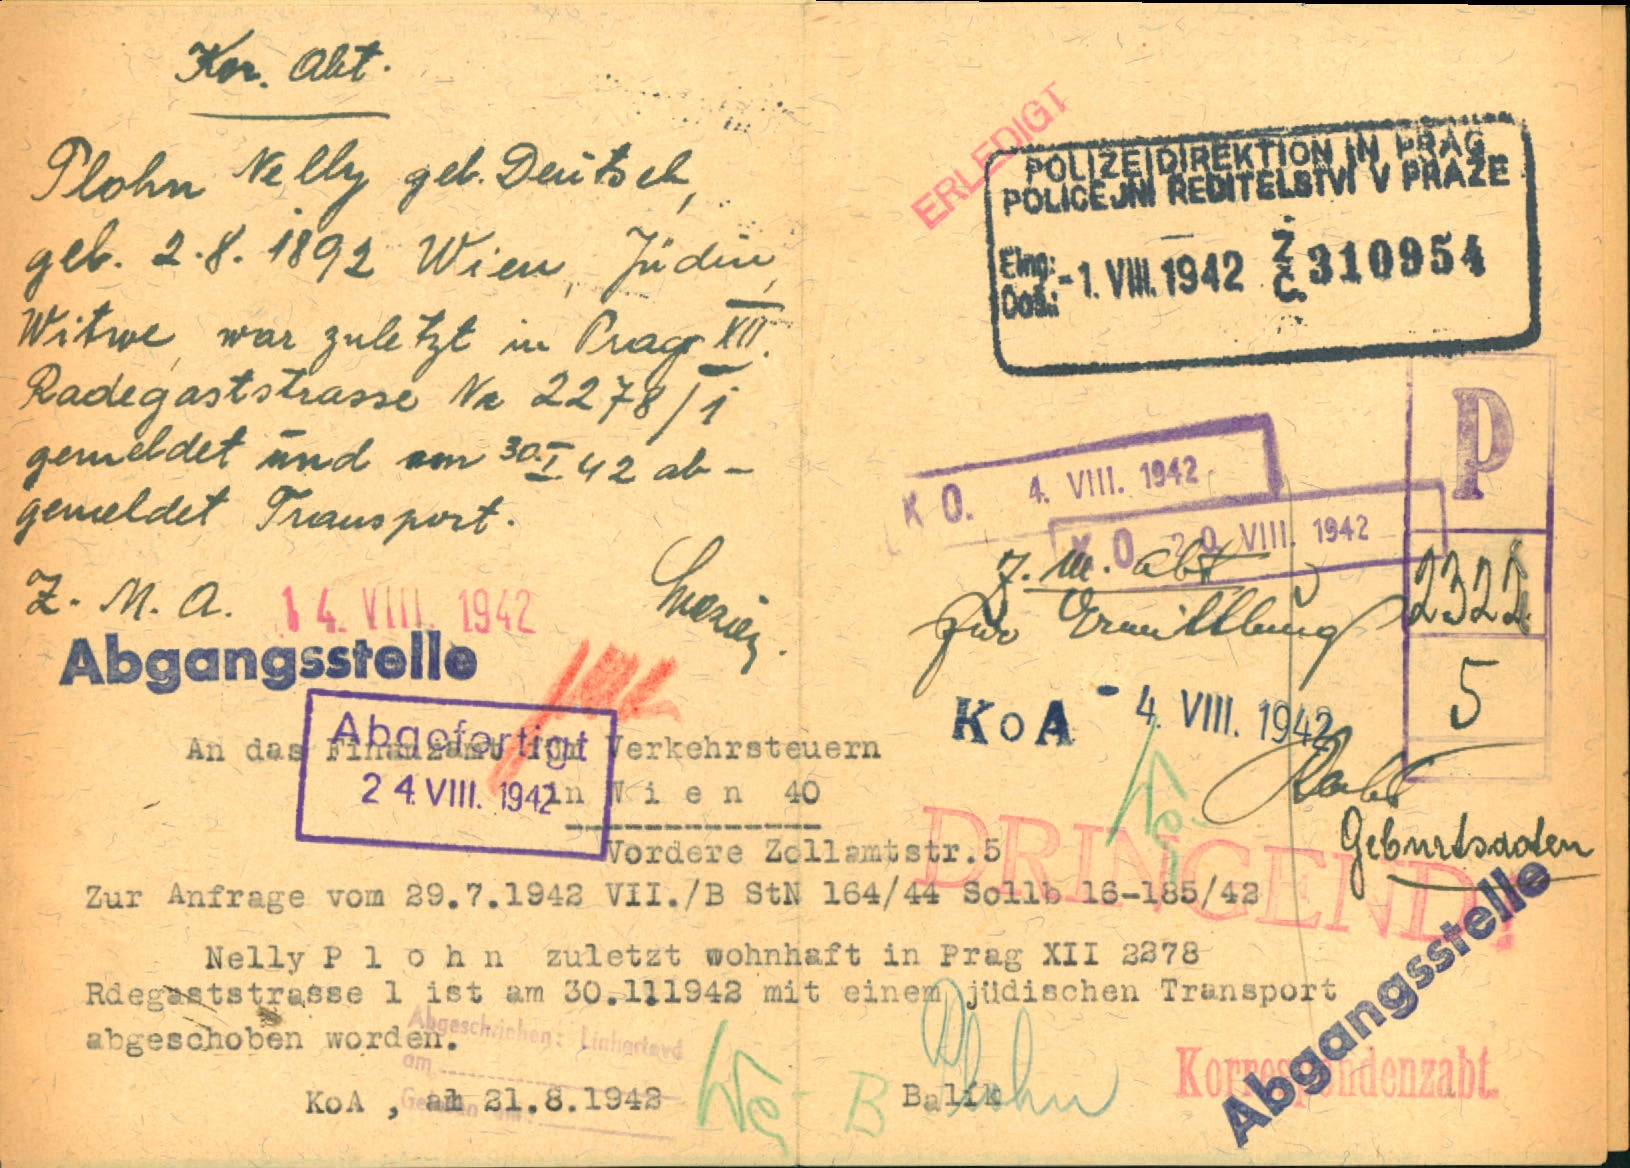 Kor. Abt.
Plohn Nelly geb. Deutsch,
geb. 2.8.1892 Wien, Jüdin,
Witwe, war zuletzt in Prag XII.
Radegaststrasse Nr 2278/1
gemeldet und am 30.I.42 ab-
gemeldet Transport.
Z. M. A. 14. VIII. 1942
Abgangsstelle
Abgefertigt
24. VIII. 1942
An das Finanzamt für Verkehrsteuern
in Wien 40
Vordere Zollamtstr.5
Zur Anfrage vom 29.7.1942 VII./B StN 164/44 Sollb 16-185/42
Nelly Plohn zuletzt wohnhaft in Prag XII 2278
Rdegaststrasse 1 ist am 30.1.1942 mit einem jüdischen Transport
abgeschoben worden.
Abgeschrieben:
am
KoA , am 21.8.1942
Balík
Plohn
B
ERLEDIGT
POLIZEIDIREKTION IN PRAG
POLICEJNÍ ŘEDITELSTVÍ V PRAZE
Eing:
Doš.: -1. VIII. 1942 Ž Č. 310954
K O. 4. VIII. 1942
K O. 20 VIII. 1942
P
2322
5
Z. M. Abt
zur Ermittlung
KoA - 4. VIII. 1942
Geburtsdaten
DRINGEND!
Abgangsstelle
Korrespondenzabt.